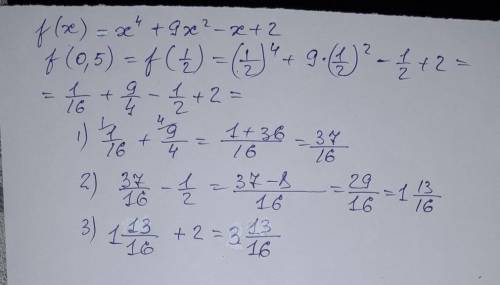 f(x) = x⁴ + 9x² - x + 2
f(0,5) = f(1/2) = (1/2)⁴ + 9·(1/2)² - 1/2 + 2 =
= 1/16 + 9/4 - 1/2 + 2 =
1) ¹⁾1/16 + ⁴⁾9/4 = (1+36)/16 = 37/16
2) 37/16 - 1/2 = (37-8)/16 = 29/16 = 1 13/16
3) 1 13/16 + 2 = 3 13/16